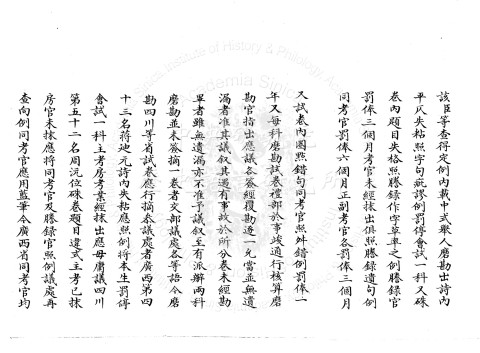 該臣等查得定例內載中式眾人磨勘出詩內
平仄失粘照字句疵謬例罰停會試一科又硃
卷內題目失格照謄錄作字草率之例謄錄官
罰俸三個月考官未經抹出俱照謄錄遺句例
同考官罰俸六個月正副考官各罰俸三個月
又試卷內圈點錯句同考官照舛錯例罰俸一
年又每科磨勘試卷禮部於事竣通行核算磨
勘官指出應議各簽經覆勘近一允當並無遺
漏者准其議敘其遇有事故於所分卷未經勘
畢者雖無遺漏亦不准予議敘至有派辦兩科
磨勘並未簽摘一卷者交部議處各等語今磨
勘四川等省試卷應行摘參議處者廣西第四
十三名蔣迪元詩內失粘應照例將本生罰停
會試一科主考房考業經抹出應毋庸議四川
第五十二名周沅位硃卷題目違式主考已抹
房官未抹應將同考官及謄錄官照例議處再
查向例同考官應用藍筆今廣西省同考官均